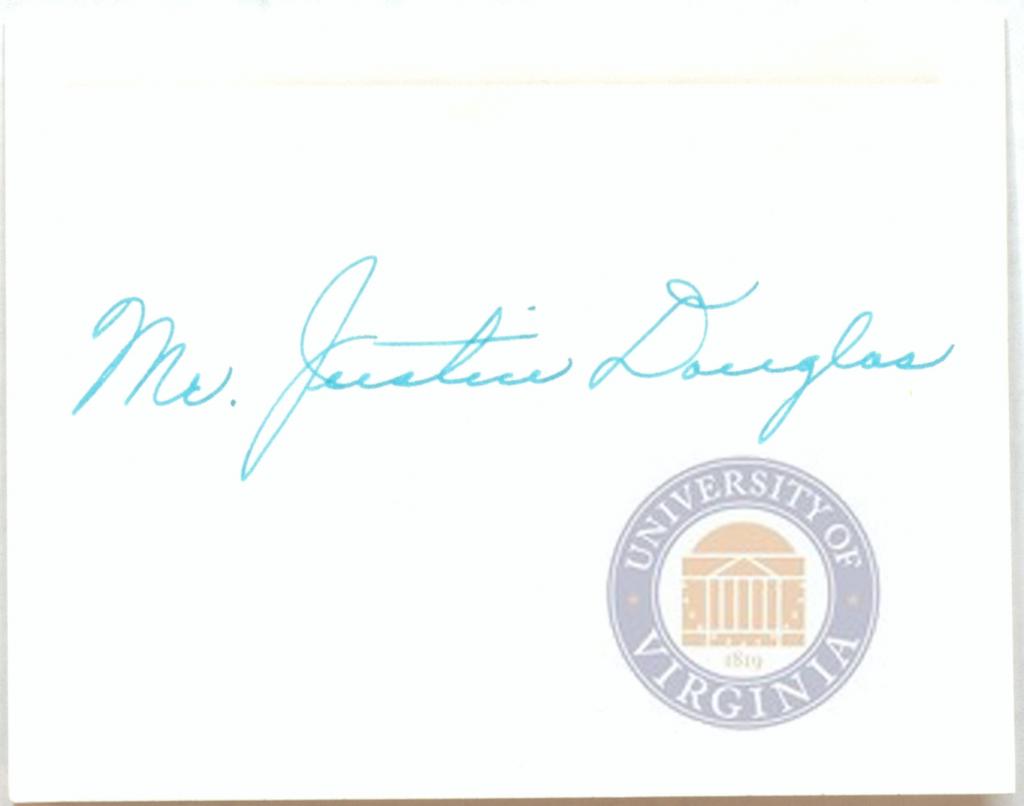 Mr. Justice Douglas
UNIVERSITY OF
VIRGINIA
1819